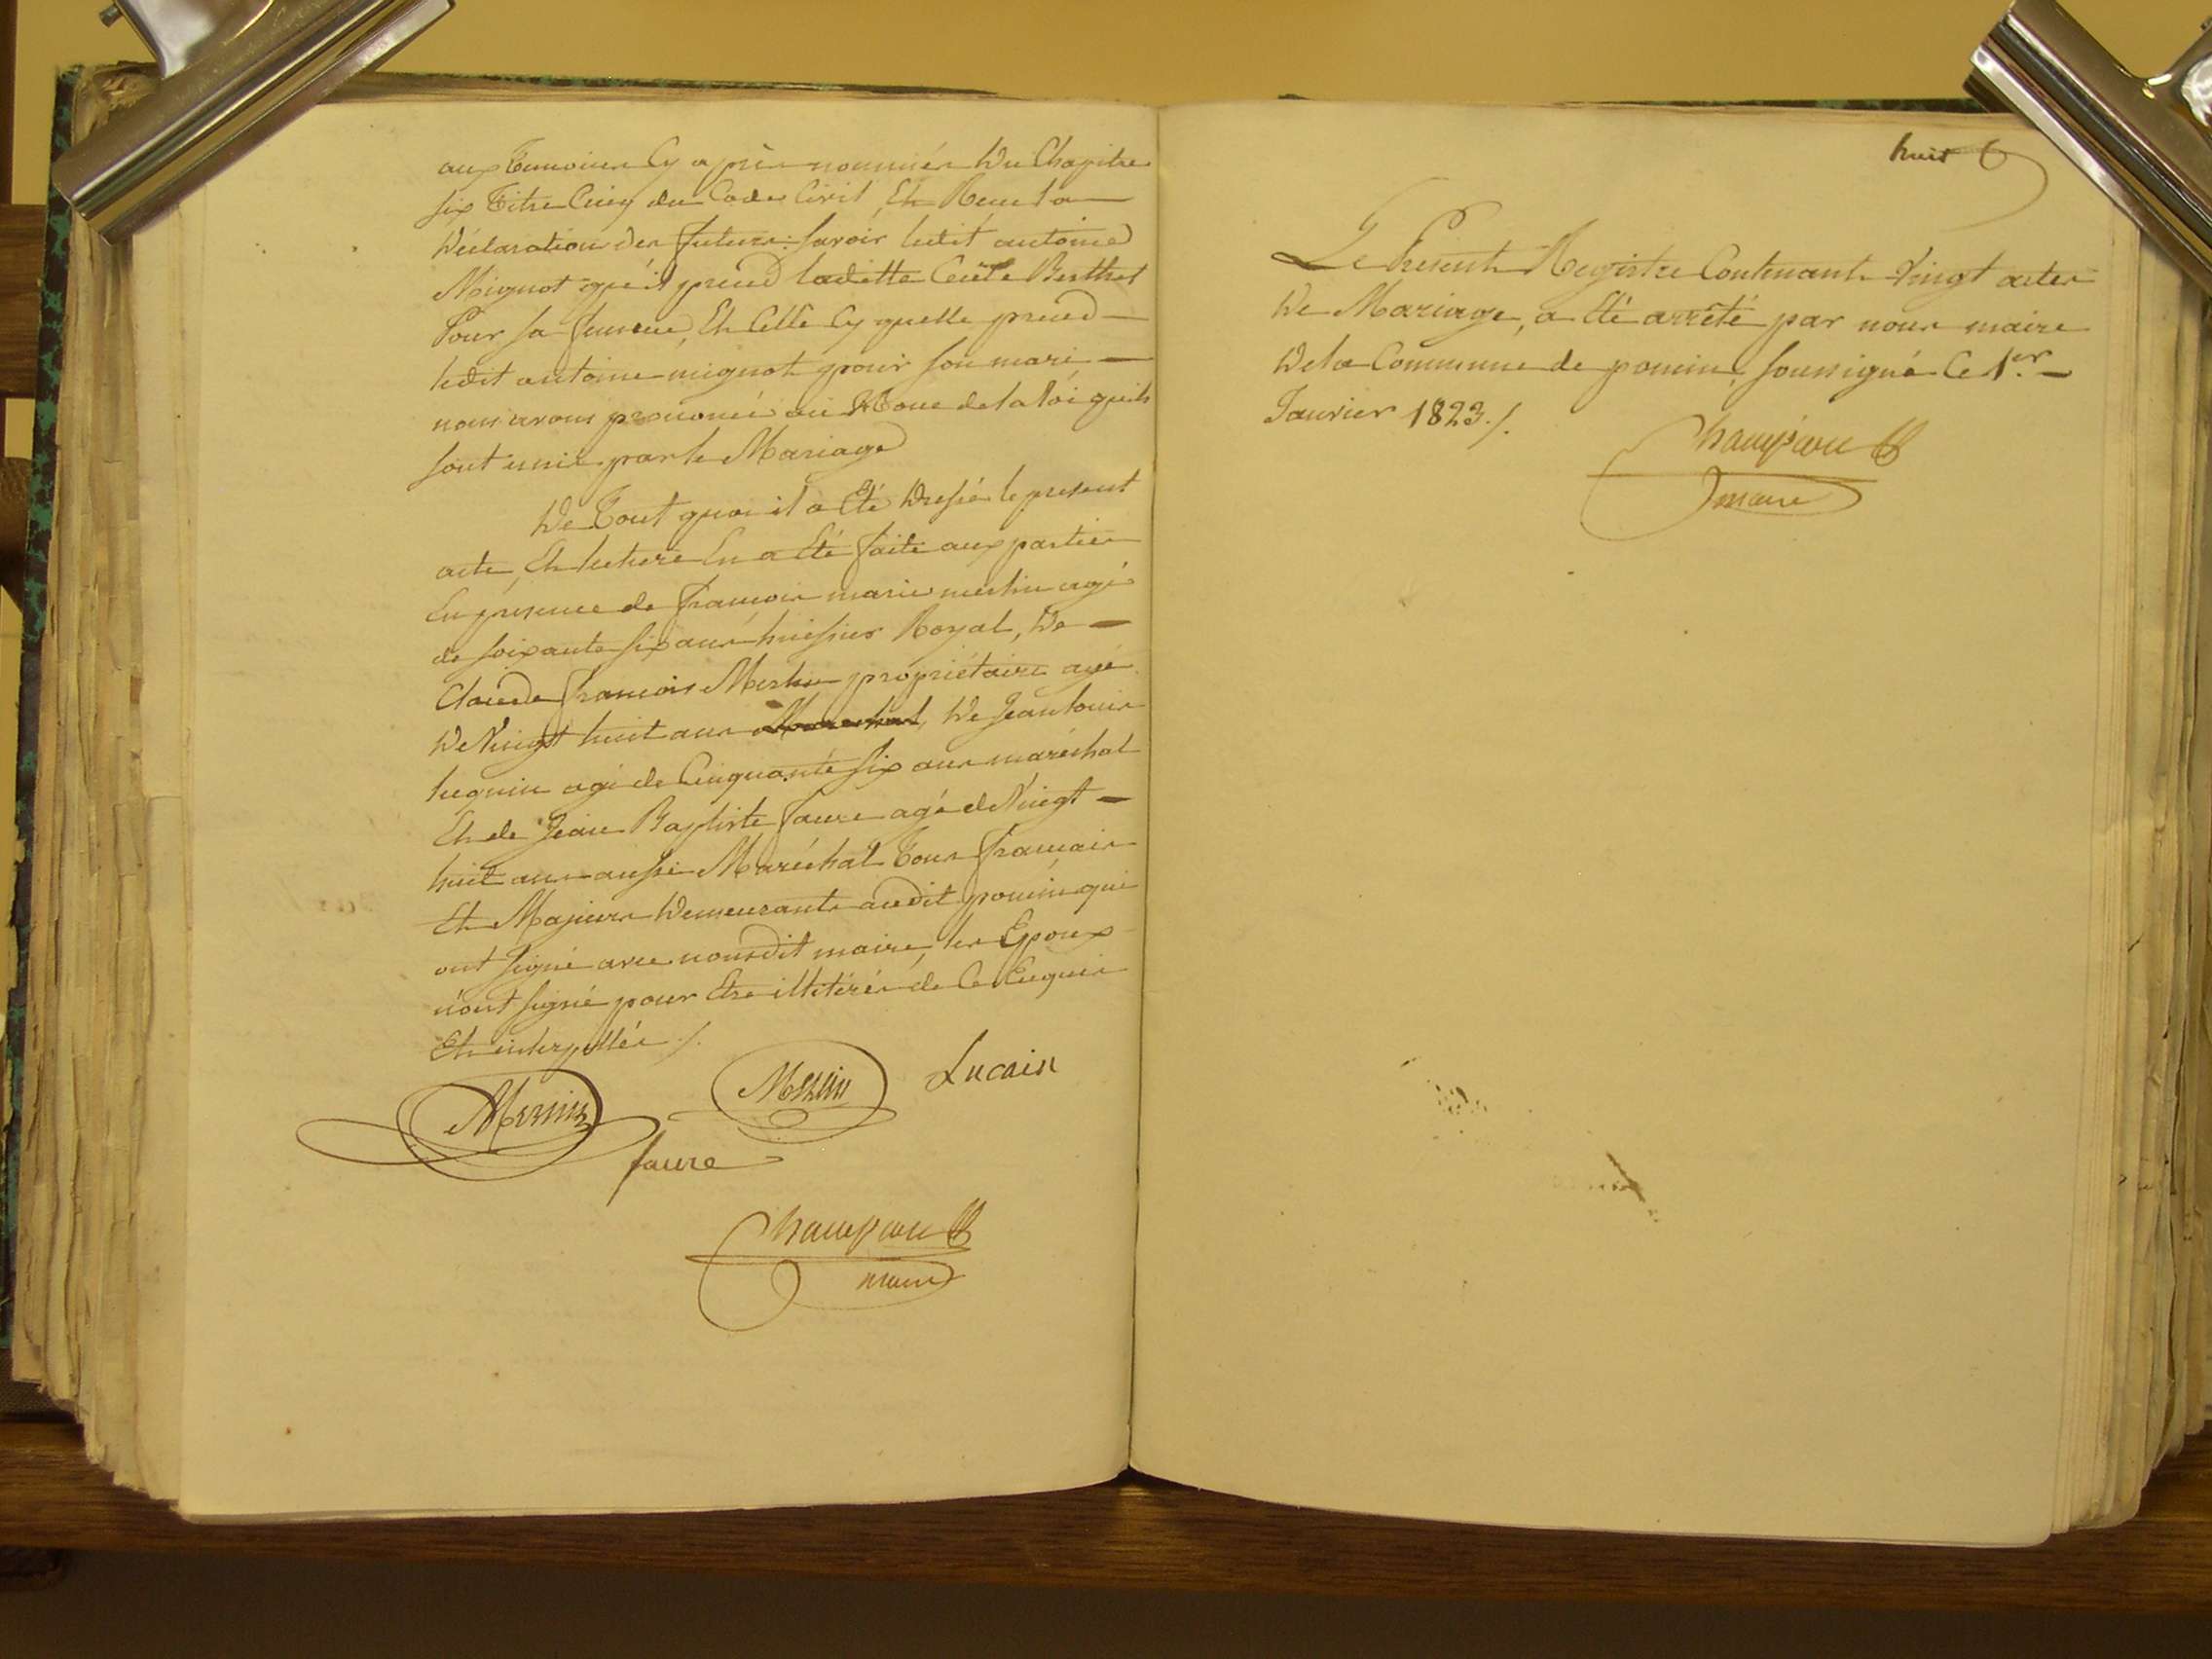 aux temoins cy après nommés Du Chapitre
six Titre Cinq du Code Civil, Et Recu la
Déclaration des futurs: savoir ledit antoine
Mignot qu'il prend laditte Cécile Berthet
Pour sa femme, Et Celle Cy quelle prend
ledit antoine mignot pour son mari
nous avons prononcé au Nom de la loi quils
sont unis par le Mariage
De Tout quoi il a Eté Dressé le present
acte, Et lecture En a Eté faite aux parties
En presence de francois marie
agé
de soixante six ans huissier Royal, De
Claude francois
propriétaire agé
De Vingt huit ans Marechal, De Jean louis
agé de Cinquante six ans maréchal
Et de Jean Baptiste faure agé de Vingt
huit ans aussi Maréchal Tous francais
Et Majeurs Demeurants audit pouin qui
ont signé avec nousdit maire, les Epoux
n'ont signé pour Etre illitérés de Ce Enquis
Et interpellés ./.
Lucain
faure
maire
huit
Le Present Registre Contenant Vingt actes
De Mariage, a Eté arrêté par nous maire
De la Commune de pouin, soussigné Ce 1er
Janvier 1823./.
maire